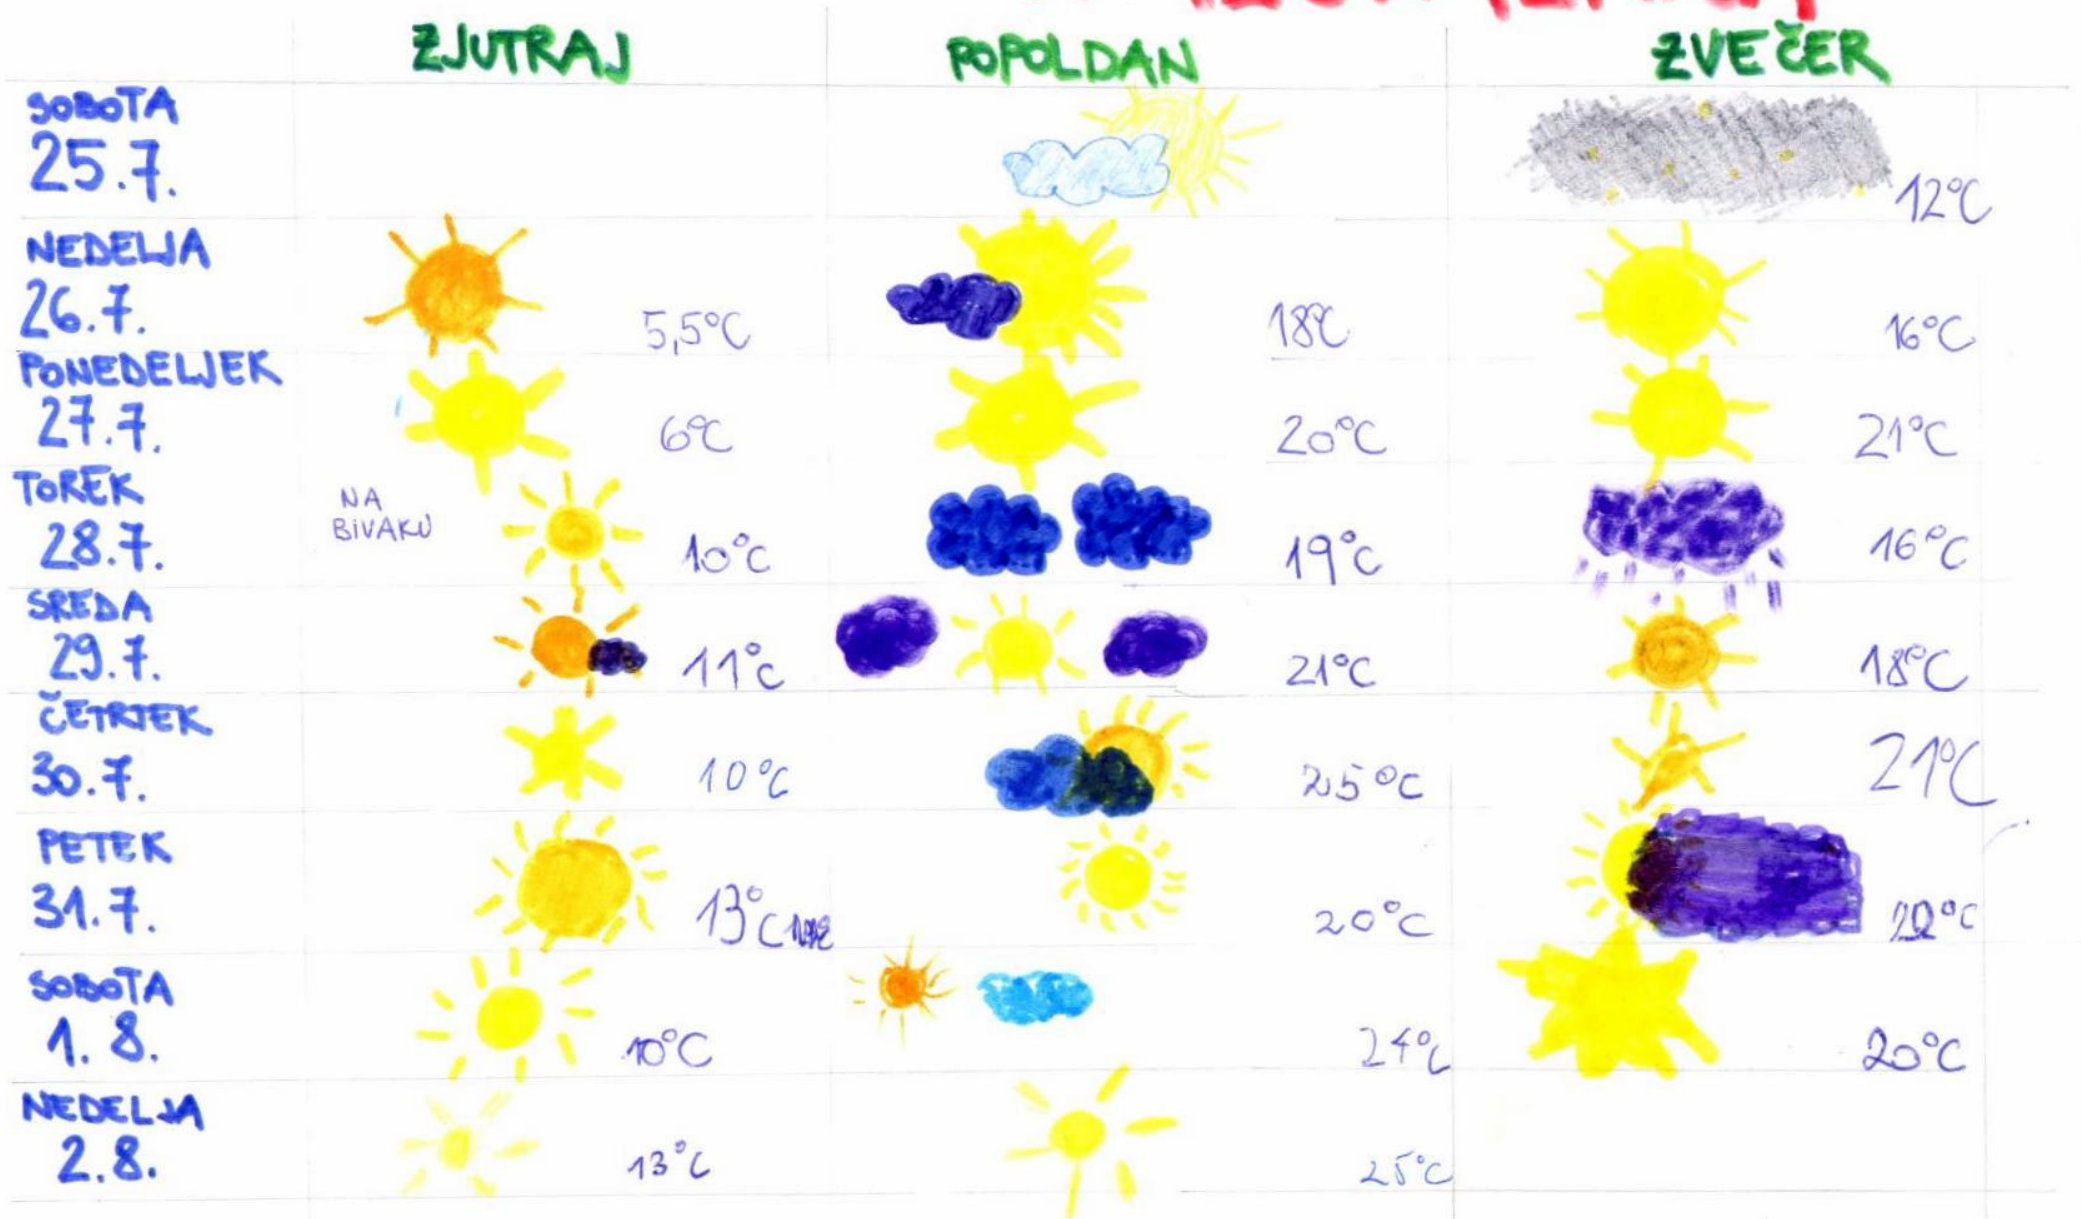 ZJUTRAJ POPOLDAN ZVEČER
SOBOTA
25.7.
12°C
NEDELJA
26.7.
5,5°C 18°C 16°C
PONEDELJEK
27.7.
6°C 20°C 21°C
TOREK
28.7.
NA
BIVAKU
10°C 19°C 16°C
SREDA
29.7.
11°C 21°C 18°C
ČETRTEK
30.7.
10°C 25°C 21°C
PETEK
31.7.
13°C 20°C
SOBOTA
1.8.
10°C 24°C 20°C
NEDELJA
2.8.
13°C 25°C